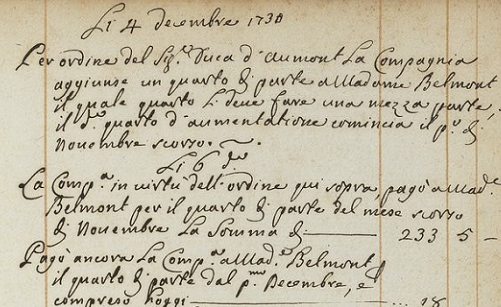 Li 4 decembre 1730
Per ordine del Sig.re Duca d'aumont La Compagnia
aggiunse un quarto di parte a Madame Belmont
il quale quarto Li deve fare una mezza parte,
il d.o quarto d'aumentatione comincia il p.o di
Novembre scorso.
Li 6 d.o
La Comp.a in virtù dell'ordine qui sopra, pagò a Mad.e
Belmont per il quarto di parte del mese scorso
di Novembre La Somma di 233 5 -
Pagò ancora La Comp.a a Mad.e Belmont
il quarto di parte dal p.mo Decembre, e
compreso hoggi 18